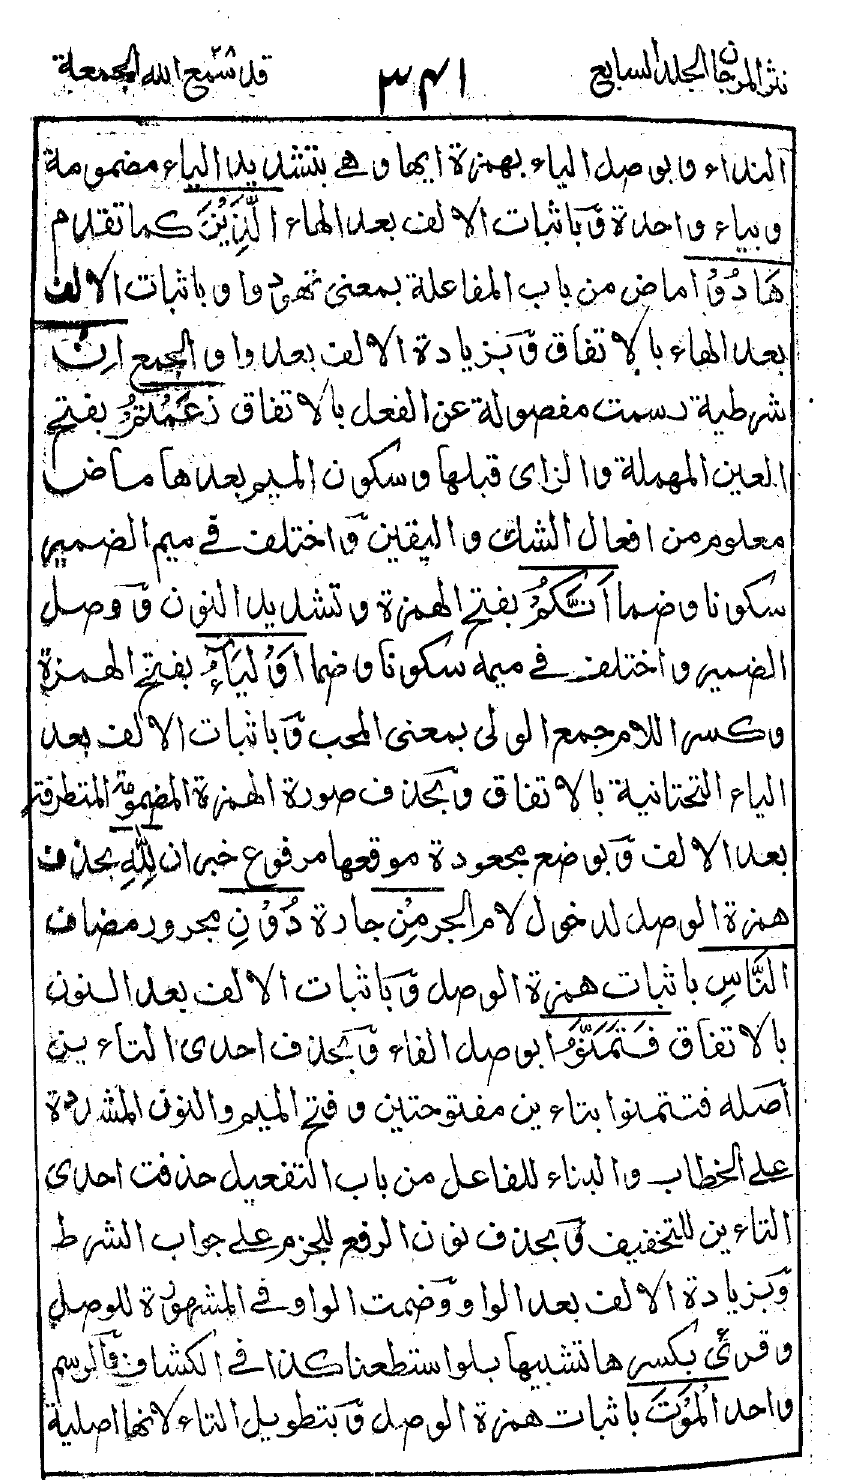 نثر المرجان الجلد السابع
٣٤١
قد سمع الله ٢٨ الجمعة
النداء وبوصل الياء بهمزة ايها وهي بتشديد الياء مضمومة
وبياء واحدة وَباثبات الالف بعد الهاء الَّذِيْنَ كما تقدم
هَادُوْا ماض من باب المفاعلة بمعنى تهودوا وباثبات الالف
بعد الهاء بالاتفاق وَبزيادة الالف بعد واو الجمع اِنْ
شرطية رسمت مفصولة عن الفعل بالاتفاق زَعَمْتُمْ بفتح
العين المهملة والزاى قبلها وسكون الميم بعدها ماض
معلوم من افعال الشك واليقين وَاختلف في ميم الضمير
سكونا وضما اَنَّكُمْ بفتح الهمزة وتشديد النون وَوصل
الضمير واختلف في ميمه سكونا وضما اَوْلِيَآءُ بفتح الهمزة
وكسر اللام جمع الولى بمعنى المحب وَباثبات الالف بعد
الياء التحتانية بالاتفاق وَبحذف صورة الهمزة المضمومة المتطرفة
بعد الالف وَبوضع مجعودة موقعها مرفوع خبر ان لِلّٰهِ بحذف
همزة الوصل لدخول لام الجر مِنْ جارة دُوْنِ مجرور مضاف
النَّاسِ باثبات همزة الوصل وَباثبات الالف بعد النون
بالاتفاق فَتَمَنَّوُا بوصل الفاء وَبحذف احدى التاءين
أصله فتتمنوا بتاءين مفتوحتين وفتح الميم والنون المشددة
على الخطاب والبناء للفاعل من باب التفعيل حذفت احدى
التاءين للتخفيف وَبحذف نون الرفع للجزم على جواب الشرط
وَبزيادة الالف بعد الواو وَضمت الواو في المشهورة للوصل
وقرئ بكسرها تشبيها بلو استطعنا كذا في الكشاف وَالرسم
واحد الْمَوْتَ باثبات همزة الوصل وَبتطويل التاء لانها اصلية